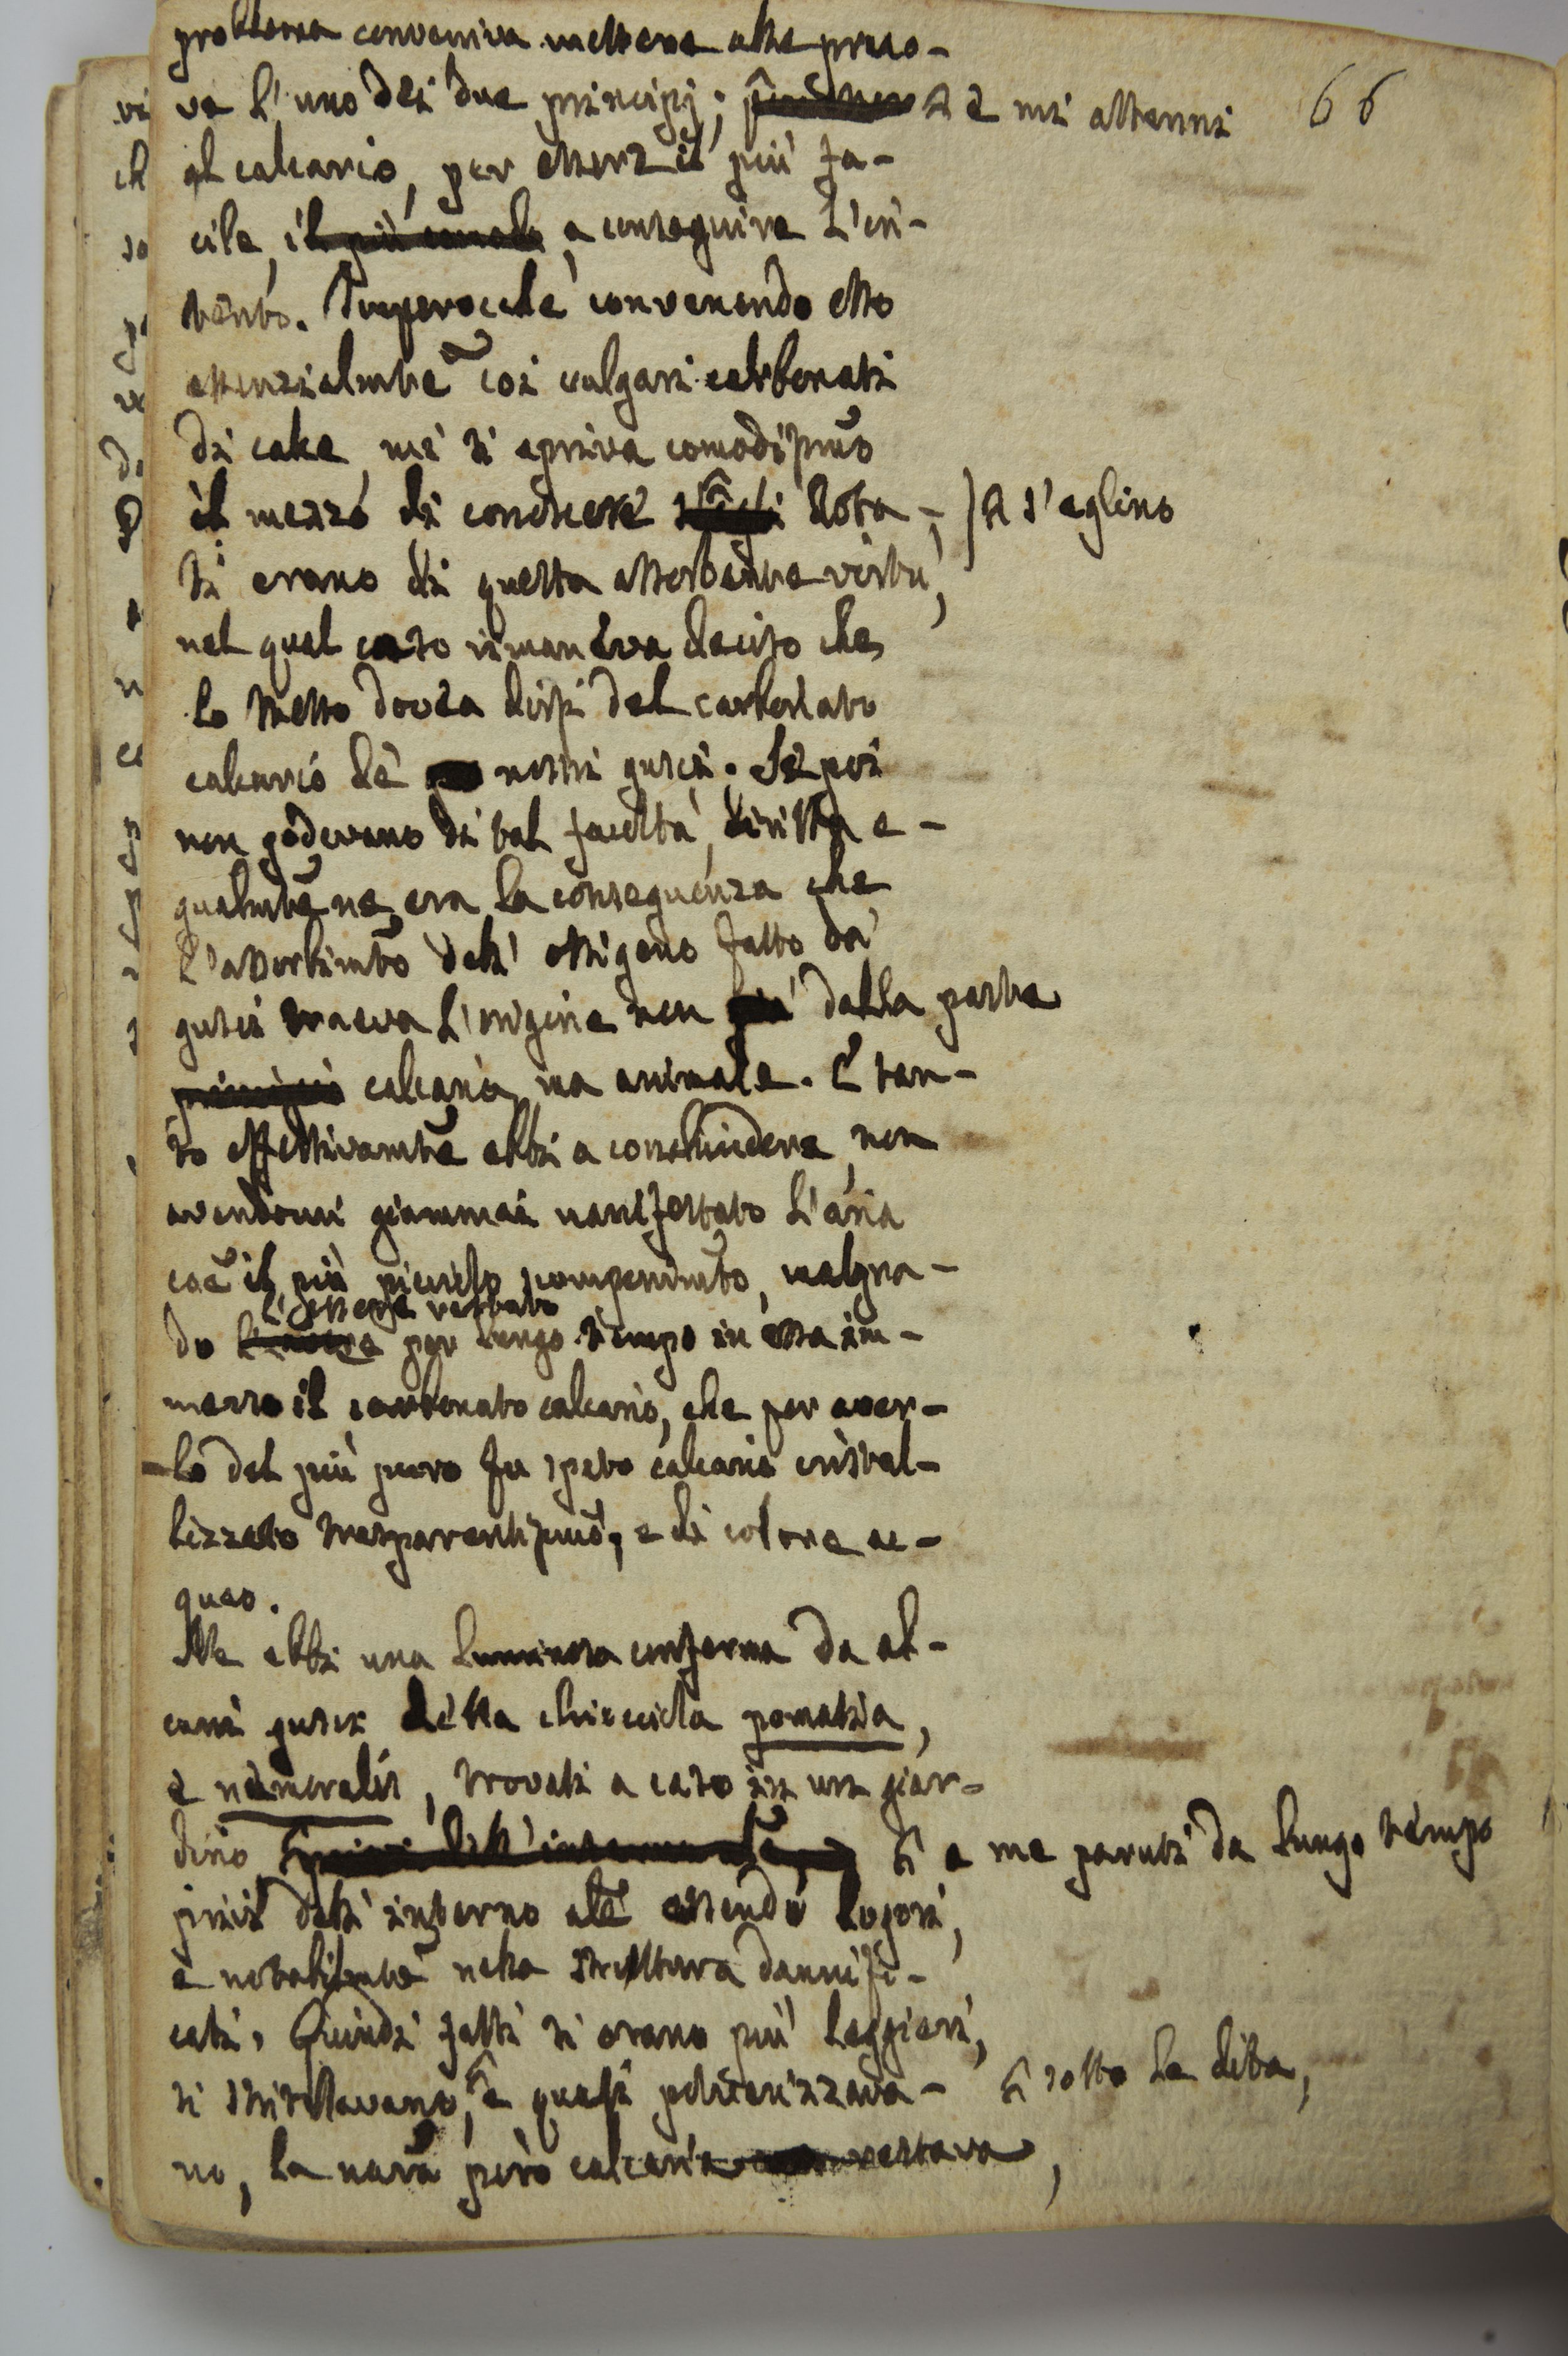 problema conveniva mettere alle pruo-
ve l'uno dei due principj; e mi attenni 66
al calcario, per essere il più fa-
cile, il più comodo, a conseguire l'in-
tento. Imperocchè convenendo esso
essenzialmte coi vulgari carbonati
di calce mi si apriva comodissimo
il mezzo di conoscere s'eglino dota-
ti erano di questa assorbente virtù,
nel qual caso rimaneva deciso che
lo stesso dovea dirsi del carbonato
calcario de' nostri gusci. Se poi
non godevano di tal facoltà, diritta e-
gualmte ne era la conseguenza che
l'assorbimto dell' ossigeno fatto da'
gusci traeva l'origine non già dalla parte
principio calcaria, ma animale. E tan-
to effettivamte ebbi a conchiudere, non
avendomi giammai manifestato l'aria
coe il più picciolo scompenimto, malgra-
do l'essere restato per lungo tempo in essa im-
merso il carbonato calcario, che per aver-
lo del più puro fu spato calcario cristal-
lizzato trasparentissimo, e di colore ac-
queo.
Ne ebbi una luminosa conferma da al-
cuni gusci della chiocciola pomatia,
e nemoralis, trovati a caso in un giar-
dino e a me paruti da lungo tempo
privi dell' interno ale essendo logori,
e notabilmte nella struttura dannifi-
cati. Quindi fatti si erano più leggieri,
si stritolavano, sotto le dita, e quasi polverizzava-
no, la nara però calcaria restava,